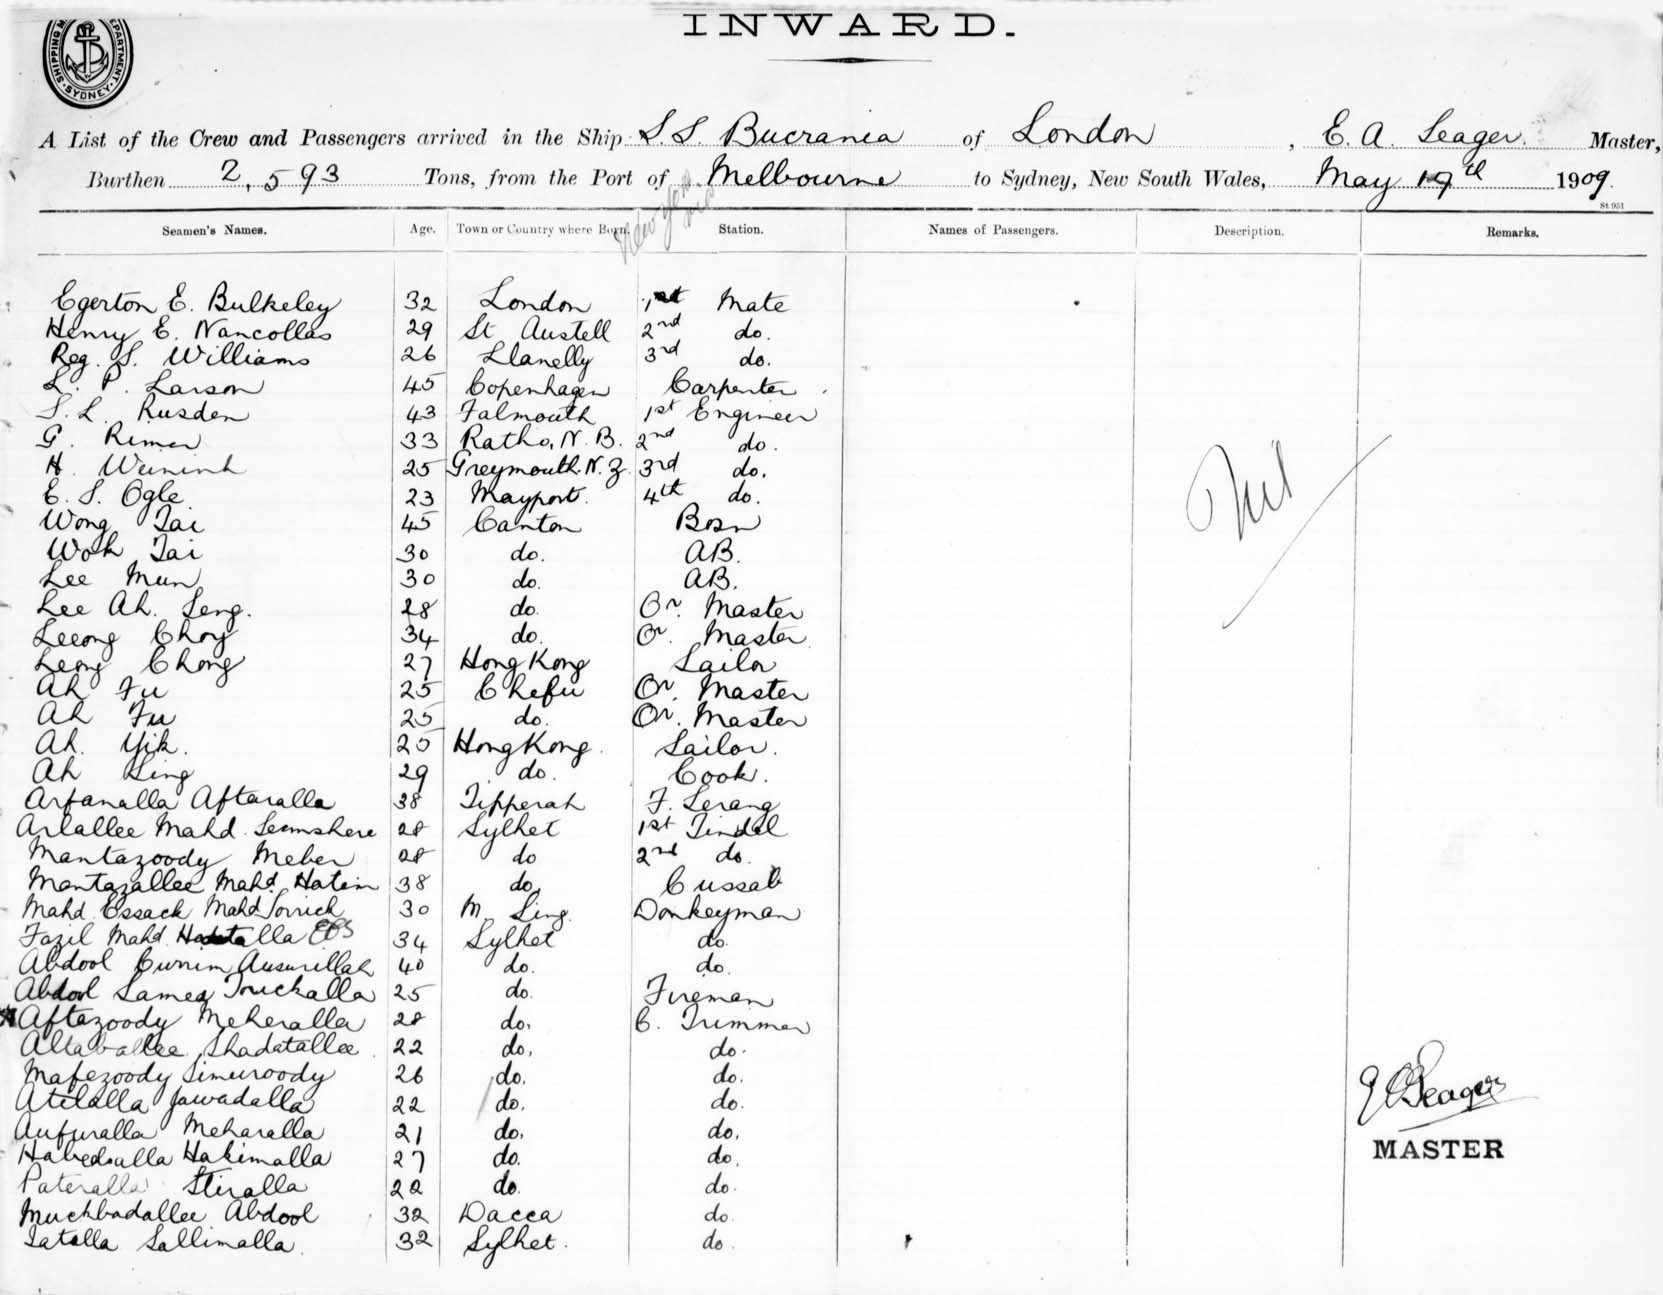 INWARD.
SHIPPING M EPARTMENT. SYDNEY.
A List of the Crew and Passengers arrived in the Ship S.S. Bucrania of London, E. A. Seager. Master,
Burthen 2,593 Tons, from the Port of Melbourne to Sydney, New South Wales, May 19th 1909.
St 951
Seamen's Names. Age. Town or Country where Born. Station. Names of Passengers. Description. Remarks.
Egerton E. Bulkeley 32 London 1st Mate
Henry E. Nancollas 29 St Austell 2nd do.
Reg. S. Williams 26 Llanelly 3rd do.
L. P. Larson 45 Copenhagen Carpenter
S. L. Rusden 43 Falmouth 1st Engineer
G. Rimer 33 Ratho, N. B. 2nd do.
H. 25 Greymouth N. Z. 3rd do.
E. S. Ogle 23 Mayport. 4th do.
Nil
Wong Tai 45 Canton Bosn
Wok Tai 30 do. AB.
Lee Mun 30 do. AB.
Lee Ah. Seng. 28 do. Qr. Master
Leeong Choy 34 do. Qr. Master
Leong Chong 27 Hong Kong Sailor
Ah Fu 25 Chefu Qr. Master
Ah Fu 25 do. Qr. Master
Ah. Yik. 25 Hong Kong. Sailor.
Ah Sing 29 do. Cook.
Arfanalla Aftaralla 38 Tipperah F. Serang
Arlallee Mahd. 28 Sylhet 1st Tindal
Mantazoody Meher 28 do 2nd do.
Mantazallee Mahd. Hatim 38 do. Cussab
Mahd. Essack Mahd 30 M. Sing. Donkeyman
Fazil Mahd. 34 Sylhet do.
Abdool Currim Ausurillah 40 do. do.
Abdool Samed Truckalla 25 do. Fireman
Aftazoody Meheralla 28 do. C. Trimmer
Altaballee Shadatallee 22 do. do.
Mafezoody Simuroody 26 do. do.
Atilalla Jawadalla 22 do. do.
Aufuralla Meharalla 21 do. do.
Habedalla Hakimalla 27 do. do.
E A Seager
MASTER
Pateralla Stiralla 22 do. do.
Muckbadallee Abdool 32 Dacca do.
Satalla Sallimalla. 32 Sylhet. do.